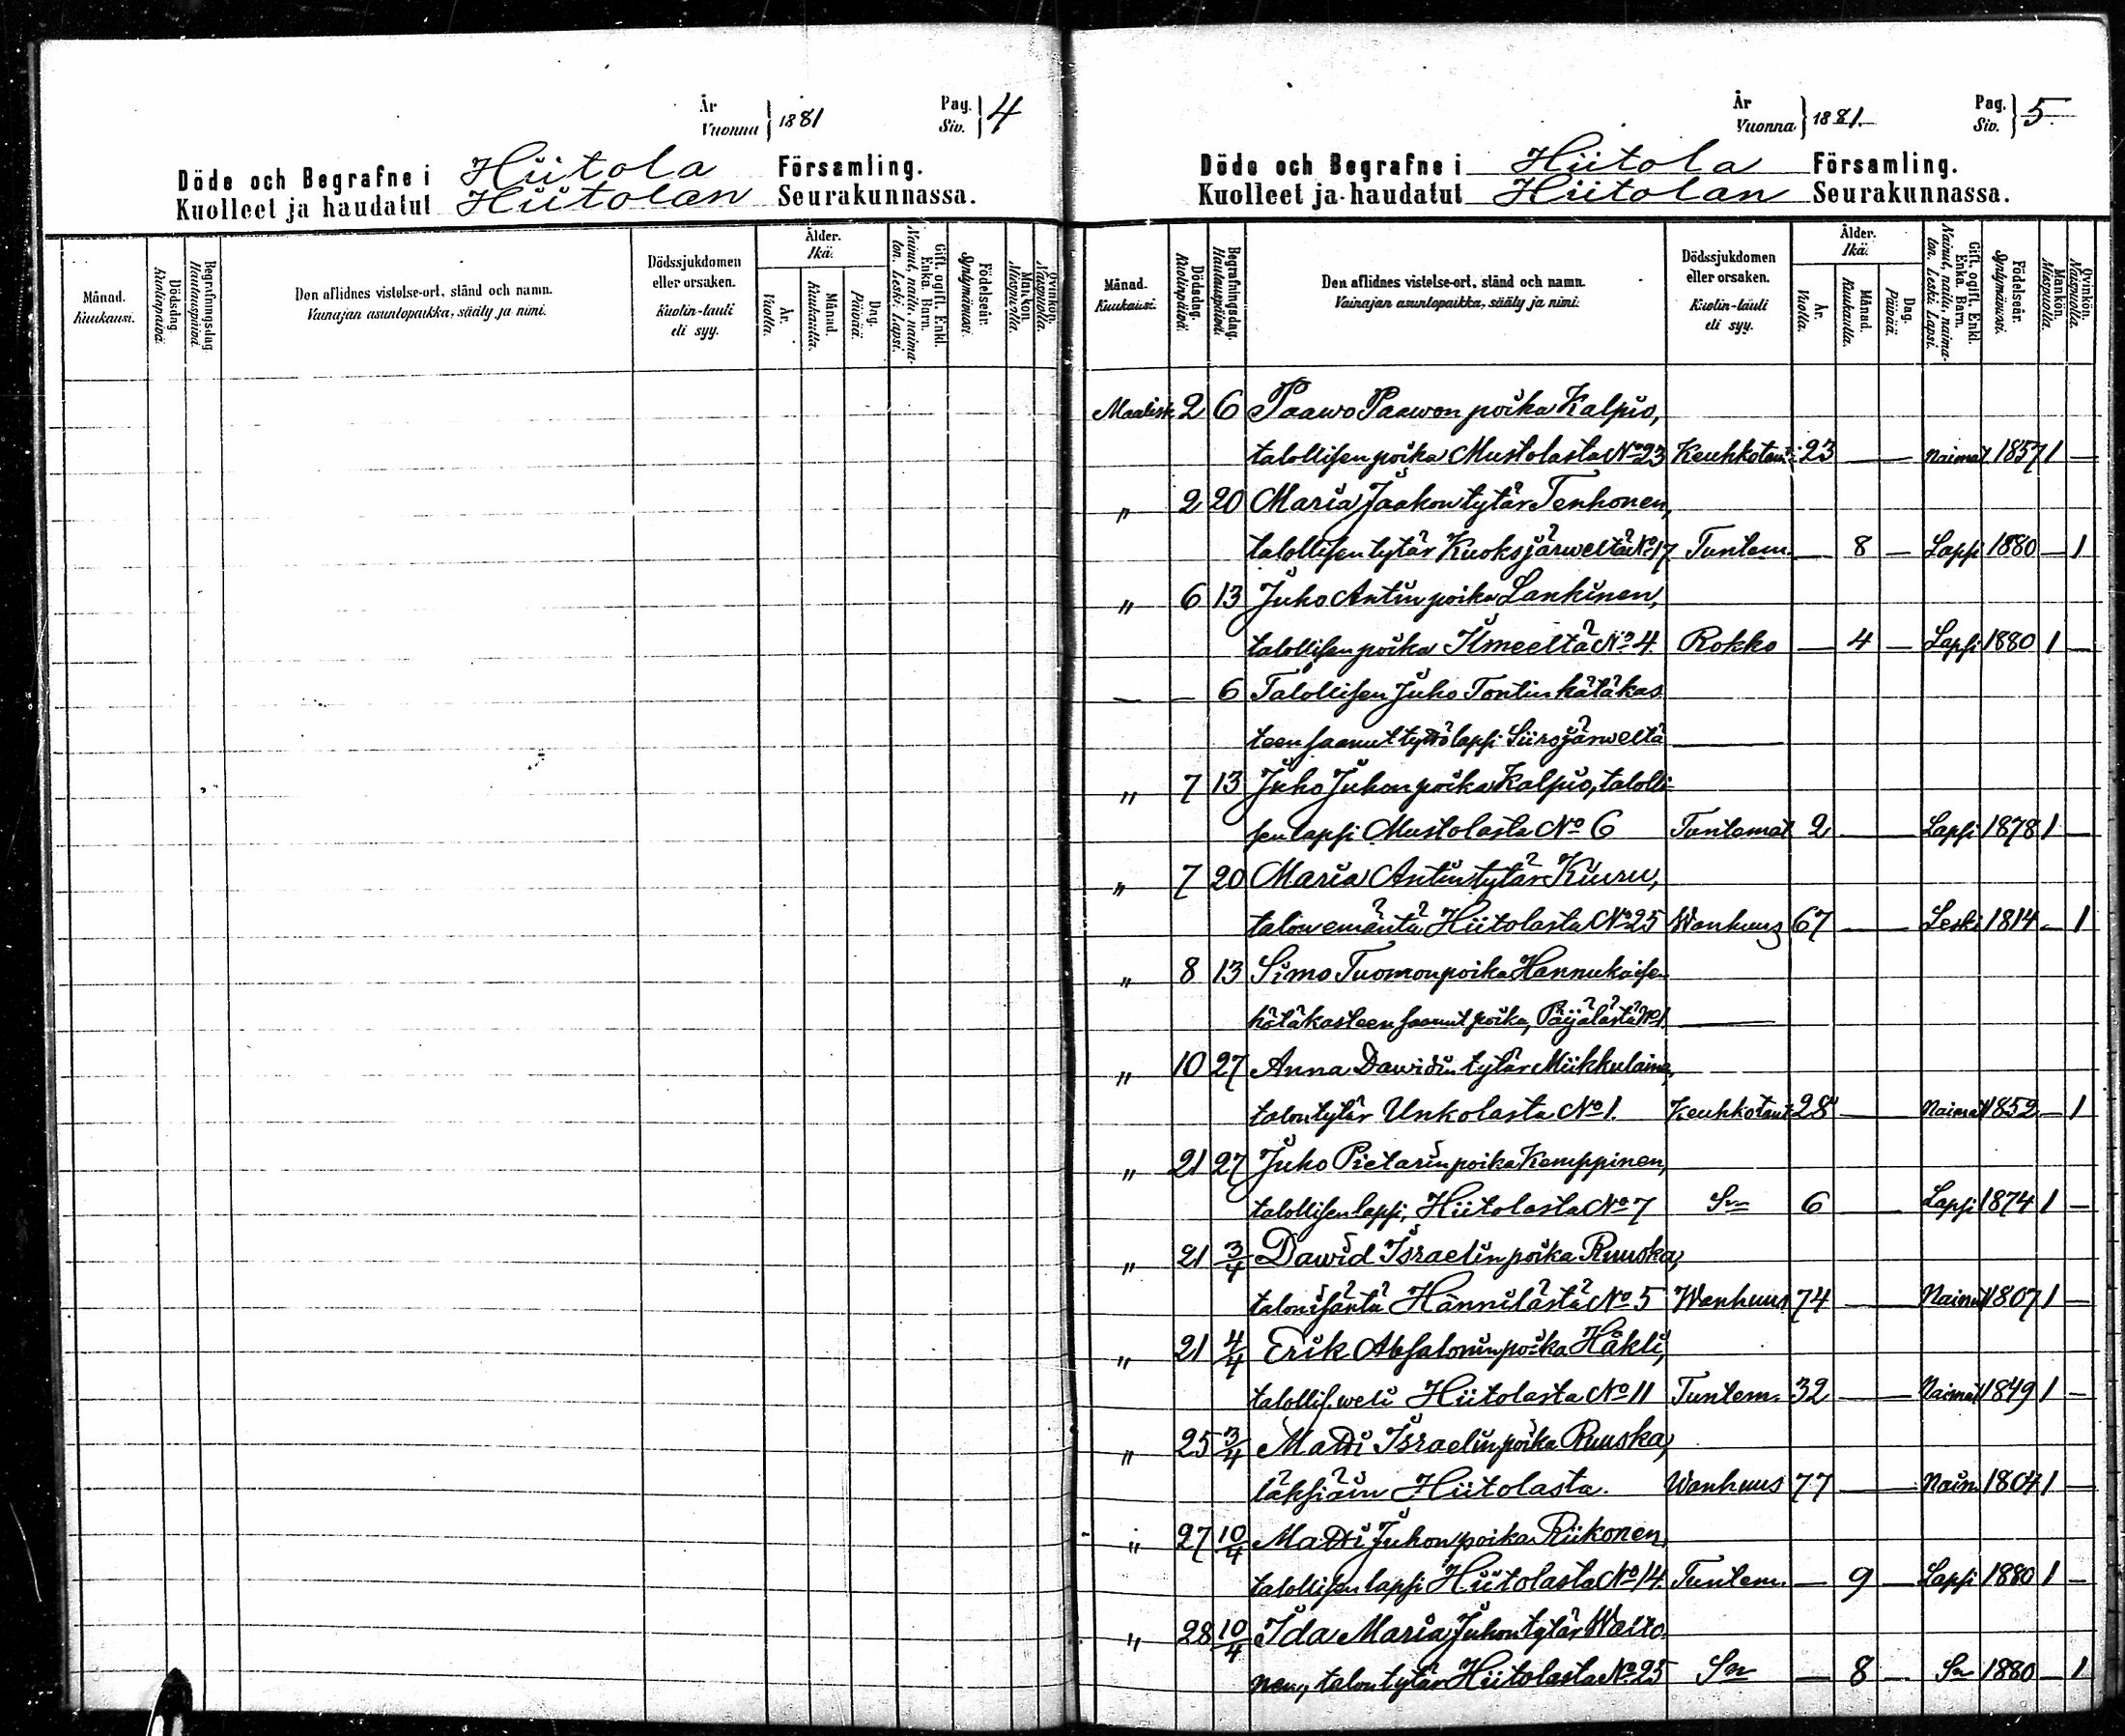 År
Vuonna } 1881
Pag.
Siv. } 4
Döde och Begrafne i Hiitola Församling.
Kuolleet ja haudatut Hiitolan Seurakunnassa.
Månad. Kuukausi.
Dödsdag. Kuolinpäivä.
Begrafningsdag. Hautauspäivä.
Den aflidnes vistelse-ort, stånd och namn.
Vainajan asuntopaikka, sääty ja nimi.
Dödssjukdomen eller orsaken.
Kuolin-tauti eli syy.
Ålder. Ikä.
År. Vuotta.
Månad. Kuukautta.
Dag. Päivää.
Gift, ogift, Enkl. Enka. Barn.
Nainut, naitu, naimaton. Leski. Lapsi.
Födelseår. Syntymävuosi.
Mankön. Miespuolta.
Qvinkön. Naispuolta.
År
Vuonna } 1881.
Pag.
Siv. } 5.
Döde och Begrafne i Hiitola Församling.
Kuolleet ja haudatut Hiitolan Seurakunnassa.
Månad. Kuukausi.
Dödsdag. Kuolinpäivä.
Begrafningsdag. Hautauspäivä.
Den aflidnes vistelse-ort, stånd och namn.
Vainajan asuntopaikka, sääty ja nimi.
Dödssjukdomen eller orsaken.
Kuolin-tauti eli syy.
Ålder. Ikä.
År. Vuotta.
Månad. Kuukautta.
Dag. Päivää.
Gift, ogift, Enkl. Enka. Barn.
Nainut, naitu, naimaton. Leski. Lapsi.
Födelseår. Syntymävuosi.
Mankön. Miespuolta.
Qvinkön. Naispuolta.
Maalisk. 2 6 Paawo Paawon poika Kalpio,
talollisen poika Mustolasta No 23 Keuhkotaut. 23 — Naimat. 1857 1 —
" 2 20 Maria Jaakon tytär Tenhonen,
talollisen tytär Kuoksjärweltä No 17 Tuntem. — 8 — Lapsi 1880 — 1
" 6 13 Juho Antin poika Lankinen,
talollisen poika Ilmeeltä No 4. Rokko — 4 — Lapsi 1880 1 —
— — 6 Talollisen Juho Tontin hätäkas
teen saanut tyttölapsi Siirojärweltä —
" 7 13 Juho Juhon poika Kalpio, talolli-
sen lapsi Mustolasta No 6 Tuntemat 2 — Lapsi 1878 1 —
" 7 20 Maria Antin tytär Kiuru,
talon emäntä Hiitolasta No 25 Wanhuus 67 — Leski 1814 — 1
" 8 13 Simo Tuomonpoika Hannukaisen
hätäkasteen saanut poika, Päijälästä No 1 —
" 10 27 Anna Dawidin tytär Miikkulaine,
talon tytär Unkolasta No 1. Keuhkotaut 28 — Naimat 1852 — 1
" 21 27 Juho Pietarin poika Kemppinen,
talollisen lapsi, Hiitolasta No 7 Sn 6 — Lapsi 1874 1 —
" 21 3/4 Dawid Israelin poika Ruuska,
talonisäntä Hännilästä No 5 Wanhuus 74 — Nainut 1807 1 —
" 21 4/4 Erik Absalonin poika Häkli,
talollis. weli Hiitolasta No 11 Tuntem. 32 — Naimat 1849 1 —
" 25 3/4 Matti Israelin poika Ruuska,
läksiäin Hiitolasta. Wanhuus 77 — Nain. 1804 1 —
" 27 10/4 Matti Juhon poika Riikonen,
talollisen lapsi Hiitolasta No 14. Tuntem. — 9 — Lapsi 1880 1 —
" 28 10/4 Ida Maria Juhon tytär Waito
nen, talon tytär Hiitolasta No 25 Sn — 8 — Sn 1880 — 1